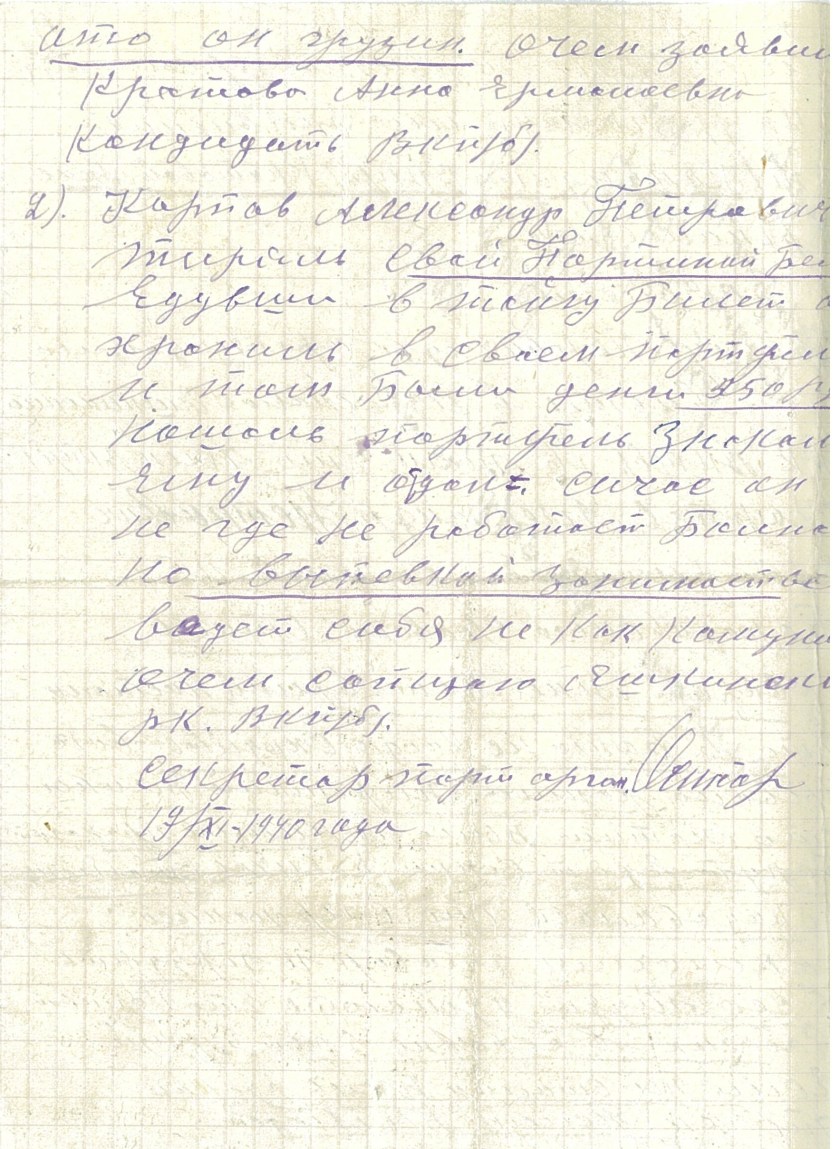 что он грузин. очем заявил
Кратова Анна Ермолаевна
Кандидать ВКП(б).
2). Карпов Александр Петрович
тирсиль свой Партиной Бел
Едувши в тайгу Билет
хрониль в своем портфел
и там Были денги 250 р
Нашоль портфель Знаком
Ему и отдал. сичас он
не где не работает Болно
но выпевкай занимается
ведет себя не как Комунис
очем сопщаю Яшкински
рк. ВКП(б).
Секретар парт орган.
19/XI-1940 года